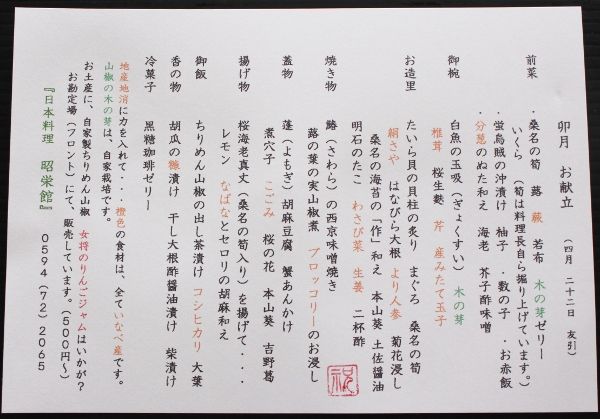 卯月　お献立　（四月　二十二日　友引）
前菜　・桑名の筍　蕗　蕨　若布　木の芽ゼリー
いくら　（筍は料理長自ら掘り上げています。）
・蛍烏賊の沖漬け　柚子　・数の子　・お赤飯
・分葱のぬた和え　海老　芥子酢味噌
御椀　白魚の玉吸（ぎょくすい）　木の芽
椎茸　桜生麩　芹　産みたて玉子
お造里　たいら貝の貝柱の炙り　まぐろ　桑名の筍
絹さや　はなびら大根　より人参　菊花浸し
桑名の海苔の「作」和え　本山葵　土佐醤油
明石のたこ　わさび菜　生姜　二杯酢
焼き物　鰆（さわら）の西京味噌焼き
蕗の葉の実山椒煮　ブロッコリーのお浸し
蓋物　蓬（よもぎ）胡麻豆腐　蟹あんかけ
煮穴子　こごみ　桜の花　本山葵　吉野葛
揚げ物　桜海老真丈（桑名の筍入り）を揚げて・・・
レモン　なばなとセロリの胡麻和え
御飯　ちりめん山椒の出し茶漬け　コシヒカリ　大葉
香の物　胡瓜の糠漬け　干し大根酢醤油漬け　柴漬け
冷菓子　黒糖珈琲ゼリー
地産地消に力を入れて・・・橙色の食材は、全ていなべ産です。
山椒の木の芽は、自家栽培です。
お土産に、自家製ちりめん山椒　女将のりんごジャムはいかが？
お勘定場（フロント）にて、販売しています。（５００円〜）
『日本料理　昭栄館』　０５９４（７２）２０６５
祝